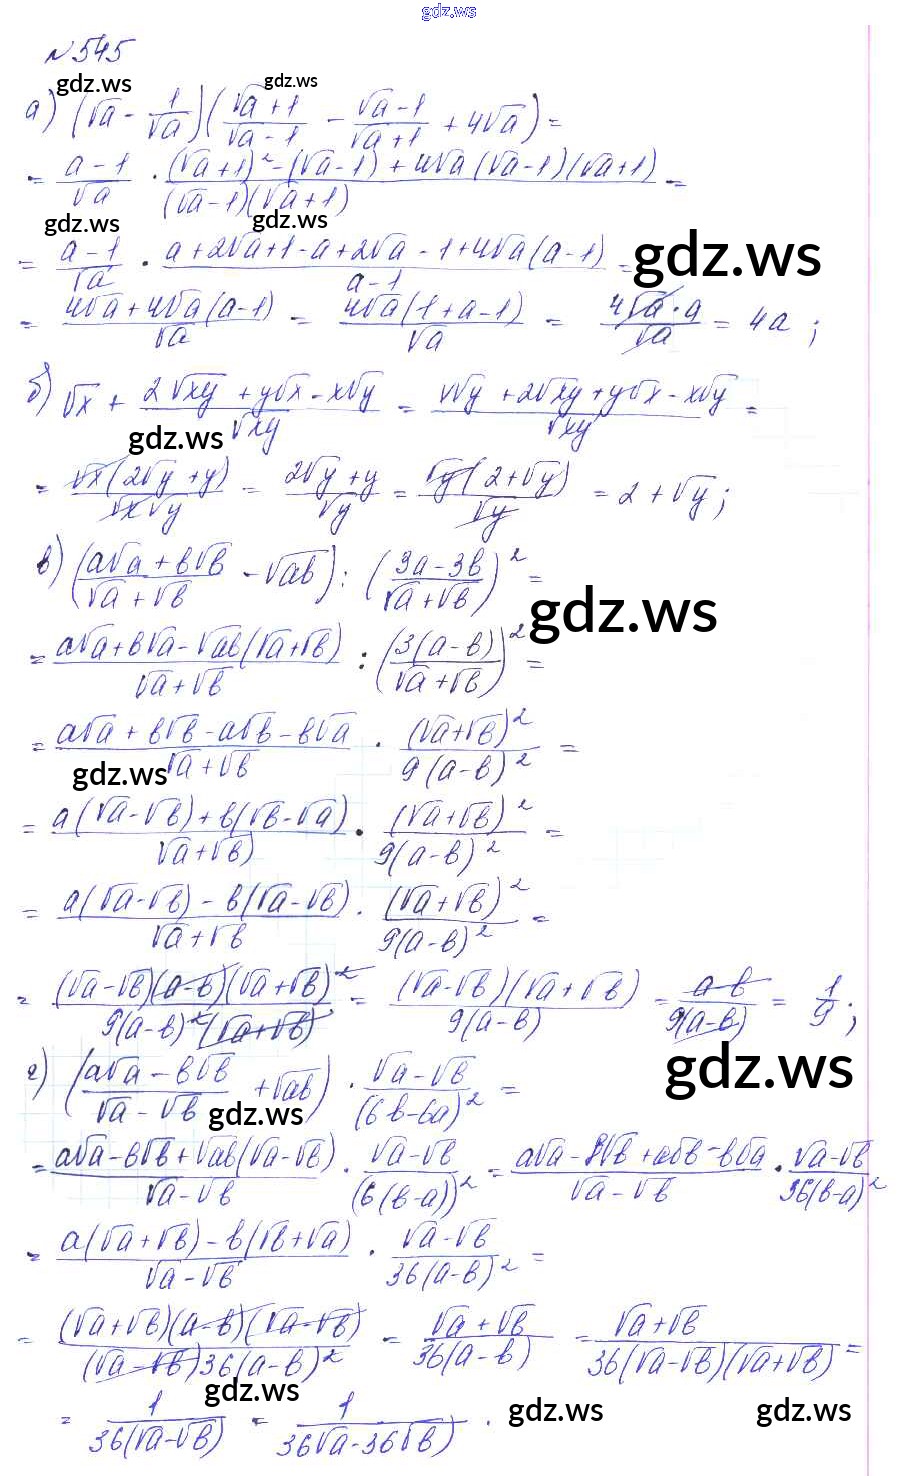 gdz.ws
№545
gdz.ws gdz.ws
а) (√a - 1/√a)((√a+1)/(√a-1) - (√a-1)/(√a+1) + 4√a) =
= (a-1)/√a · ((√a+1)² - (√a-1) + 4√a(√a-1)(√a+1))/((√a-1)(√a+1)) =
gdz.ws gdz.ws
= (a-1)/√a · (a+2√a+1-a+2√a-1+4√a(a-1))/(a-1) = gdz.ws
= (4√a+4√a(a-1))/√a = (4√a(1+a-1))/√a = (4√a·a)/√a = 4a;
б) √x + (2√xy + y√x - x√y)/√xy = (x√y + 2√xy + y√x - x√y)/√xy =
gdz.ws
= (√x(2√y + y))/(√x√y) = (2√y + y)/√y = (√y(2+√y))/√y = 2 + √y;
в) ((a√a + b√b)/(√a + √b) - √ab) : ((3a-3b)/(√a+√b))² =
gdz.ws
= (a√a + b√a - √ab(√a+√b))/(√a+√b) : ((3(a-b))/(√a+√b))² =
= (a√a + b√b - a√b - b√a)/(√a+√b) · (√a+√b)²/(9(a-b)²) =
gdz.ws
= (a(√a-√b) + b(√b-√a))/(√a+√b) · (√a+√b)²/(9(a-b)²) =
= (a(√a-√b) - b(√a-√b))/(√a+√b) · (√a+√b)²/(9(a-b)²) =
= ((√a-√b)(a-b)(√a+√b)²)/(9(a-b)²(√a+√b)) = ((√a-√b)(√a+√b))/(9(a-b)) = (a-b)/(9(a-b)) = 1/9;
gdz.ws
г) ((a√a - b√b)/(√a-√b) + √ab) · (√a-√b)/(6b-6a)² =
gdz.ws
= (a√a - b√b + √ab(√a-√b))/(√a-√b) · (√a-√b)/(6(b-a))² = (a√a - b√b + a√b - b√a)/(√a-√b) · (√a-√b)/(36(b-a)²)
= (a(√a+√b) - b(√b+√a))/(√a-√b) · (√a-√b)/(36(a-b)²) =
= ((√a+√b)(a-b)(√a-√b))/((√a-√b)36(a-b)²) = (√a+√b)/(36(a-b)) = (√a+√b)/(36(√a-√b)(√a+√b)) =
gdz.ws
= 1/(36(√a-√b)) = 1/(36√a-36√b).
gdz.ws gdz.ws